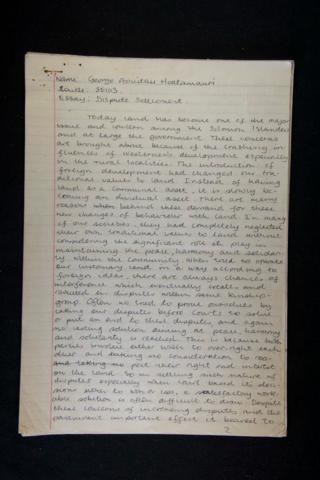 Name: George Aonitau Hoatamauri
Course: SE103.
Essay: Dispute Settlement.
Today land has become one of the major
issue and concern among the Solomon Islanders
and at large the government. These concerns
are brought about because of the crashing in-
fluences of westerners development especially
in the rural localities. The introduction of
foreign development had changed our tra-
ditional values to land. Instead of having
land as a communal asset, it is slowly be-
coming an individual asset. There are many
reasons behind these demand for these
new changes of behaviour with land. In many
of our societies, they had completely neglected
their own traditional values to land without
considering the significant role it play in
maintaining the peace, harmony and solidar-
ity within the community. When told to operate
our customary land in a way according to
foreign ideas, there are always chances of
interference which eventually create and
resulted in disputes within same kinship
group. Often we tend to prove ourselves by
taking our disputes before courts to solve
or put an end to their disputes and again
no lasting solution aiming at peace, harmony
and solidarity is reached. This is because both
parties involve either wish to over-right each
other and taking no consideration to
past their right and interest
on the land. So in settling such nature of
disputes especially when court based its deci-
sions either to win or loss, a satisfactory work-
able solution is often difficult to draw. Despite
these concerns of increasing disputes and the
important effect it beared to